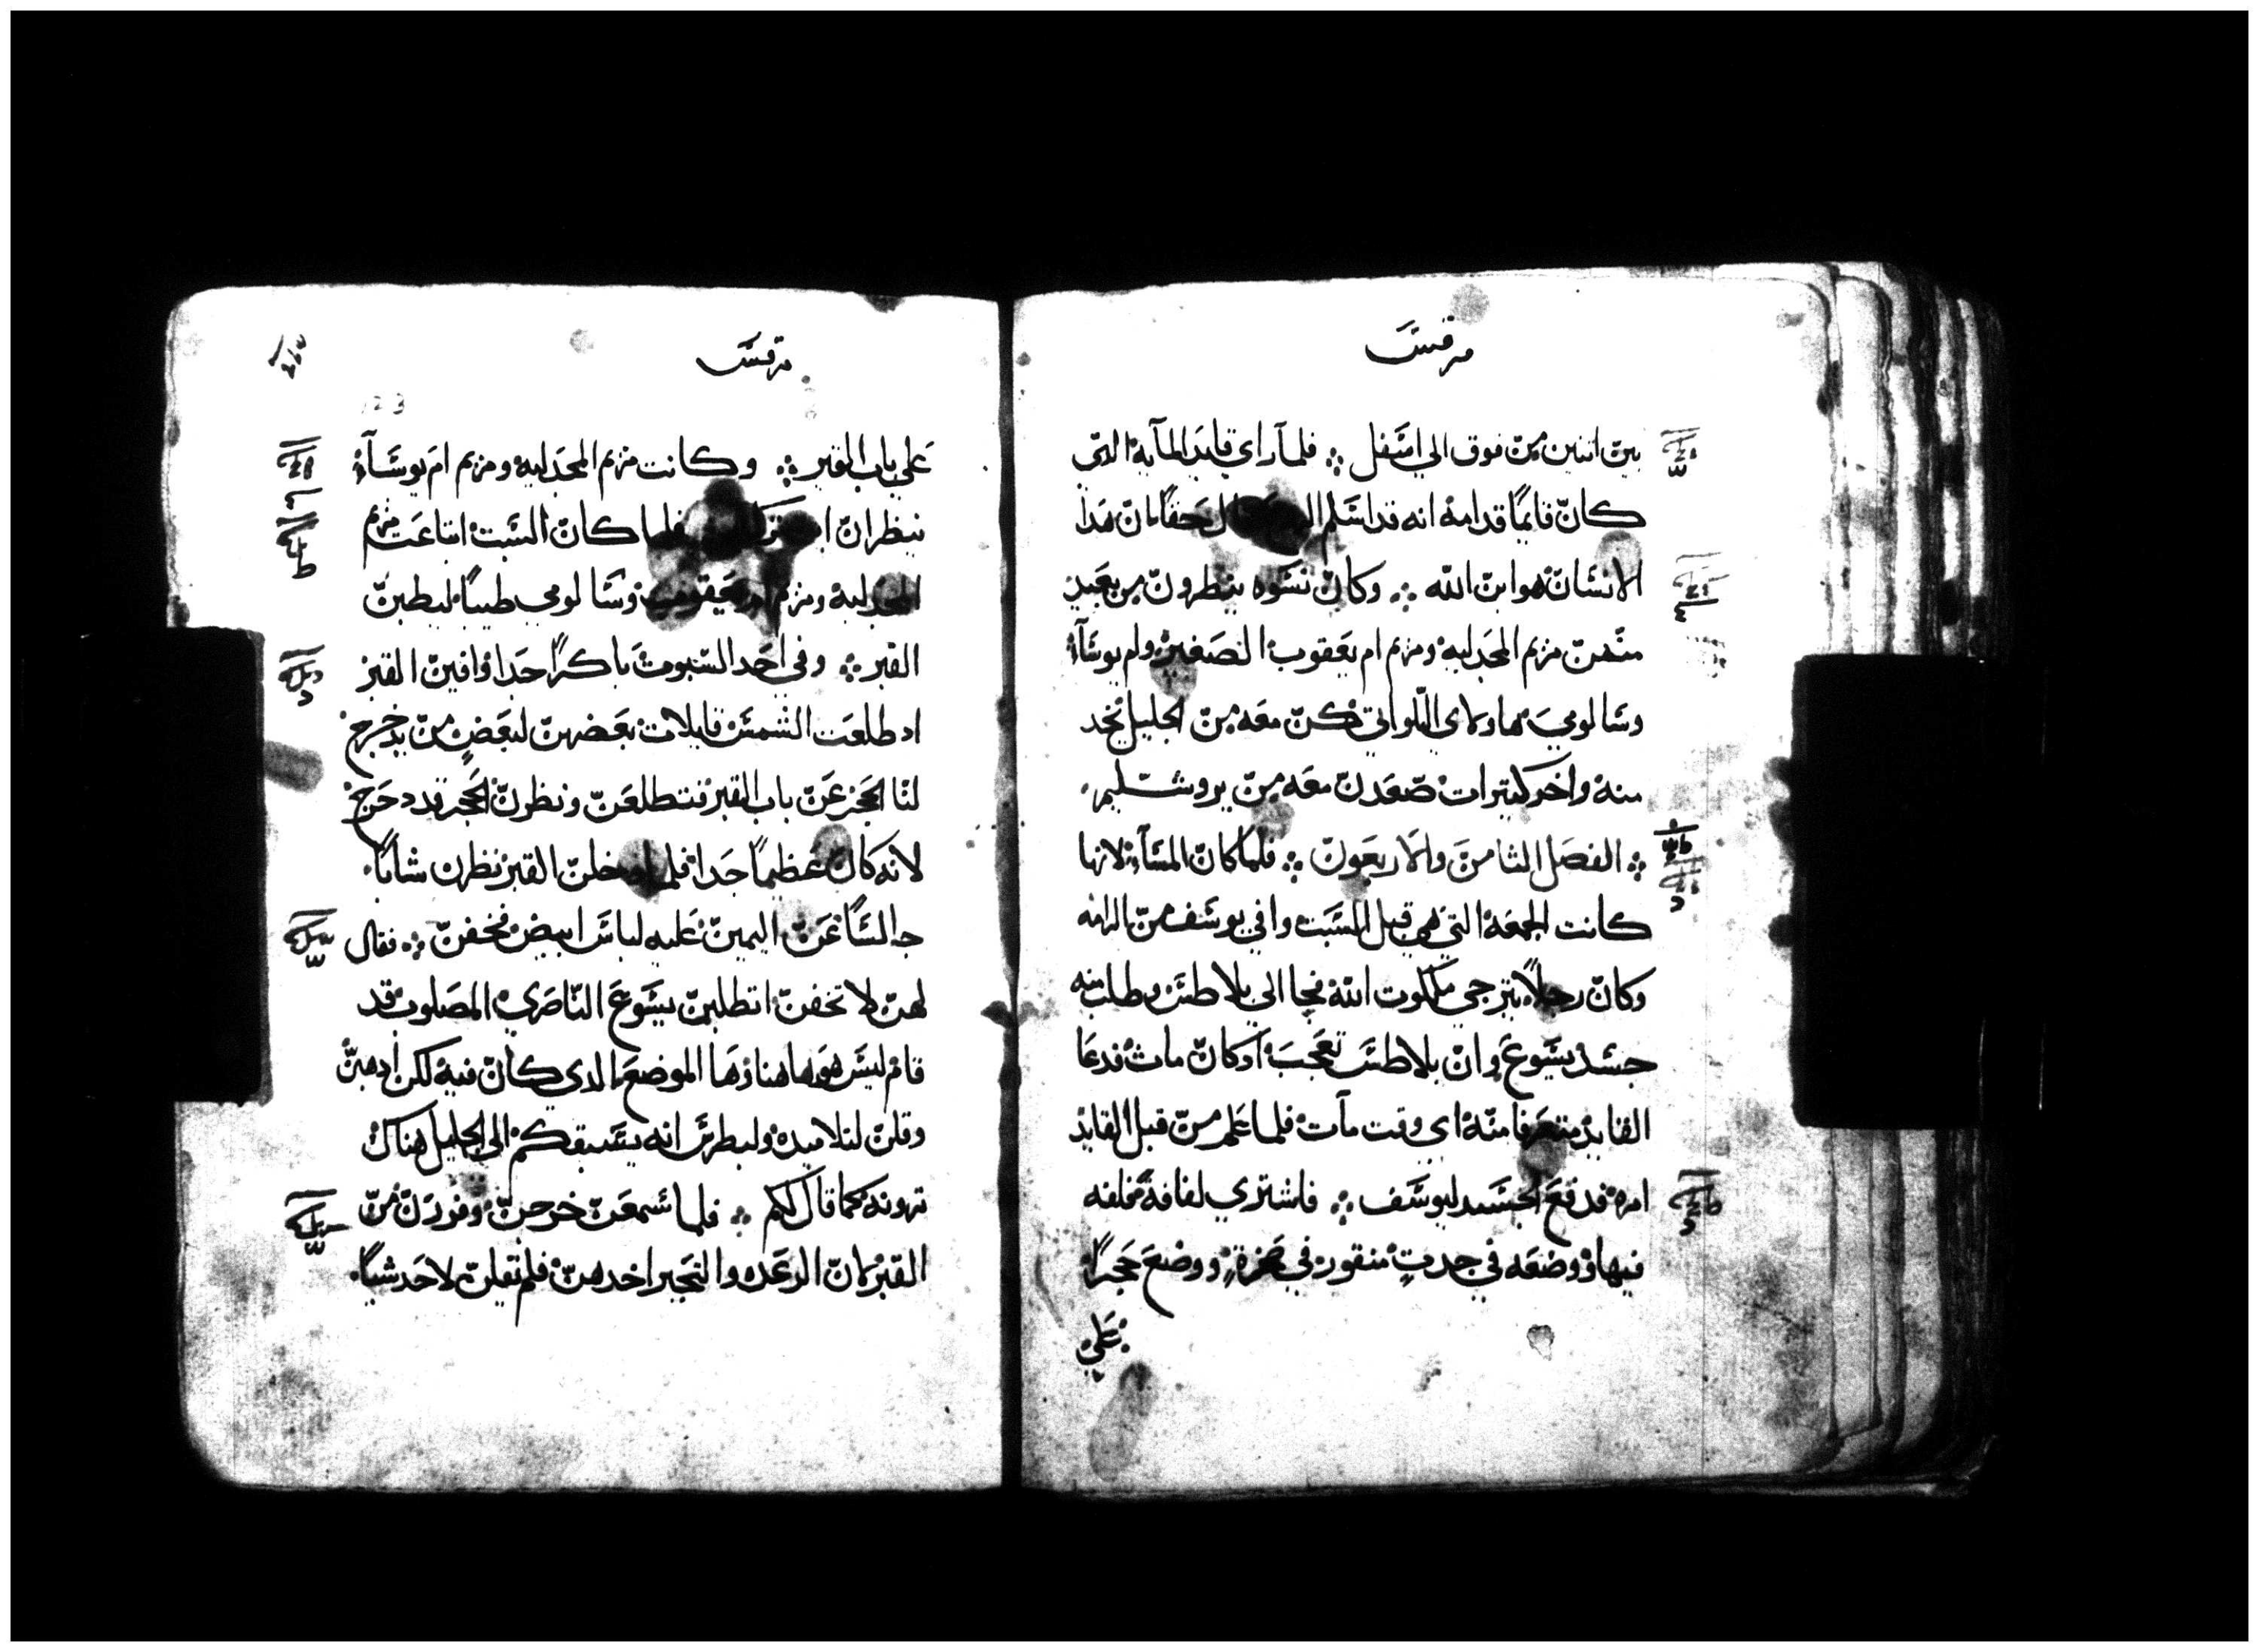 مرقس
بين اتنين من فوق الي اسفل ؞ فلما راي قايد المايه الدي
كان قايمًا قدامه انه قد اسلم قال حقًا ان هدا
الانسان هو ابن الله ؞ وكان نسوه ينظرون من بعيد
منهن مريم المجدليه ومريم ام يعقوب الصغير وام يوسا
وسالومي هاولاي اللواتي كن معه من الجليل تخد
منه واخر كتيرات صعدن معه من يروشليم
؞ الفصل التامن والاربعون ؞ فلما كان المساء لانها
كانت الجمعه التي هي قبل السبت وافي يوسف من الرامه
وكان رجلاً يترجي ملكوت الله فجا الي بلاطس وطلب منه
جسد يسوع وان بلاطس تعجب او كان مات فدعا
القايد متعرفا منه اي وقت مات فلما علم من قبل القايد
امره فدفع الجسد ليوسف ؞ فاشتري لفافة فلفه
فيها ووضعه في جدتٍ منقور في صخرة ووضع حجرًا
علي
مرقس
123
علي باب القبر ؞ وكانت مريم المجدليه ومريم ام يوساء
ينظران فلما كان السبت ابتاعت مريم
المجدليه ومريم ام يعقوب وسالومي طيبًا ليطيبن
القبر ؞ وفي احد السبوت باكرًا جدا وافين القبر
اد طلعت الشمس قايلات بعضهن لبعض من يدحرج
لنا الحجر عن باب القبر فتطلعن ونظرن الحجر قد دحرج
لانه كان عظيمًا جدا فلما دخلن القبر نظرن شابًا
جالسًا عن اليمين عليه لباس ابيض فخفن ؞ فقال
لهن لا تخفن اتطلبن يسوع الناصري المصلوب قد
قام ليس هو هاهنا وها الموضع الدي كان فيه لكن ادهبن
وقلن لتلاميده ولبطرس انه يسبقكم الي الجليل هناك
ترونه كما قال لكم ؞ فلما سمعن خرجن وفررن من
القبر لان الرعده والتحير اخدهن فلم تقلن لاحد شيًا